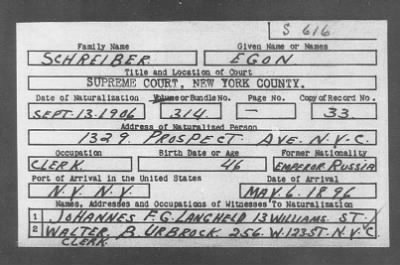 S 616
Family Name Given Name or Names
SCHREIBER EGON
Title and Location of Court
SUPREME COURT, NEW YORK COUNTY.
Date of Naturalization Volume or Bundle No. Page No. Copy of Record No.
SEPT. 13. 1906 314. — 33.
Address of Naturalized Person
1329. PROSPECT AVE. N.Y.C.
Occupation Birth Date or Age Former Nationality
CLERK. 46 EMPEROR RUSSIA
Port of Arrival in the United States Date of Arrival
N.Y. N.Y. MAY. 6. 1896
Names, Addresses and Occupations of Witnesses To Naturalization
1 JOHANNES F.G. LANGHELD 13 WILLIAMS. ST.
2 WALTER B. URBROCK. 256. W. 123 ST. N.Y.C.
CLERK